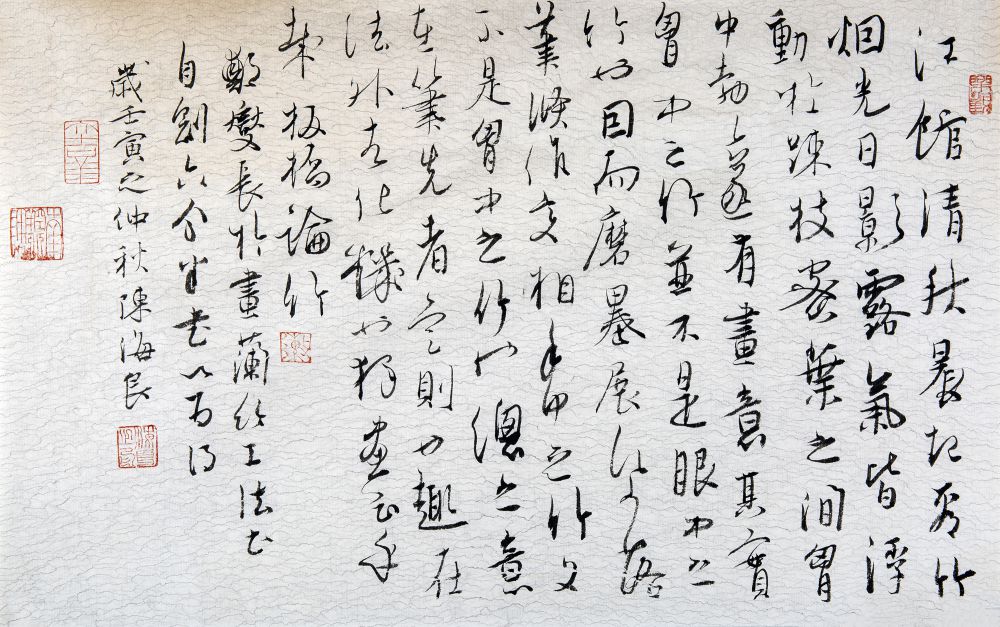 江館清秋晨起看竹
烟光日影露氣皆浮
動於疎枝密葉之間胷
中勃勃遂有畫意其實
胷中之竹並不是眼中之
竹也因而磨墨展紙落
筆倏作变相手中之竹又
不是胷中之竹也總之意
在筆先者定則也趣在
法外者化機也獨畫云乎
哉 板橋論竹
鄭燮長於畫蘭竹工法书
自創六分半书以
歲壬寅之仲秋陳海良